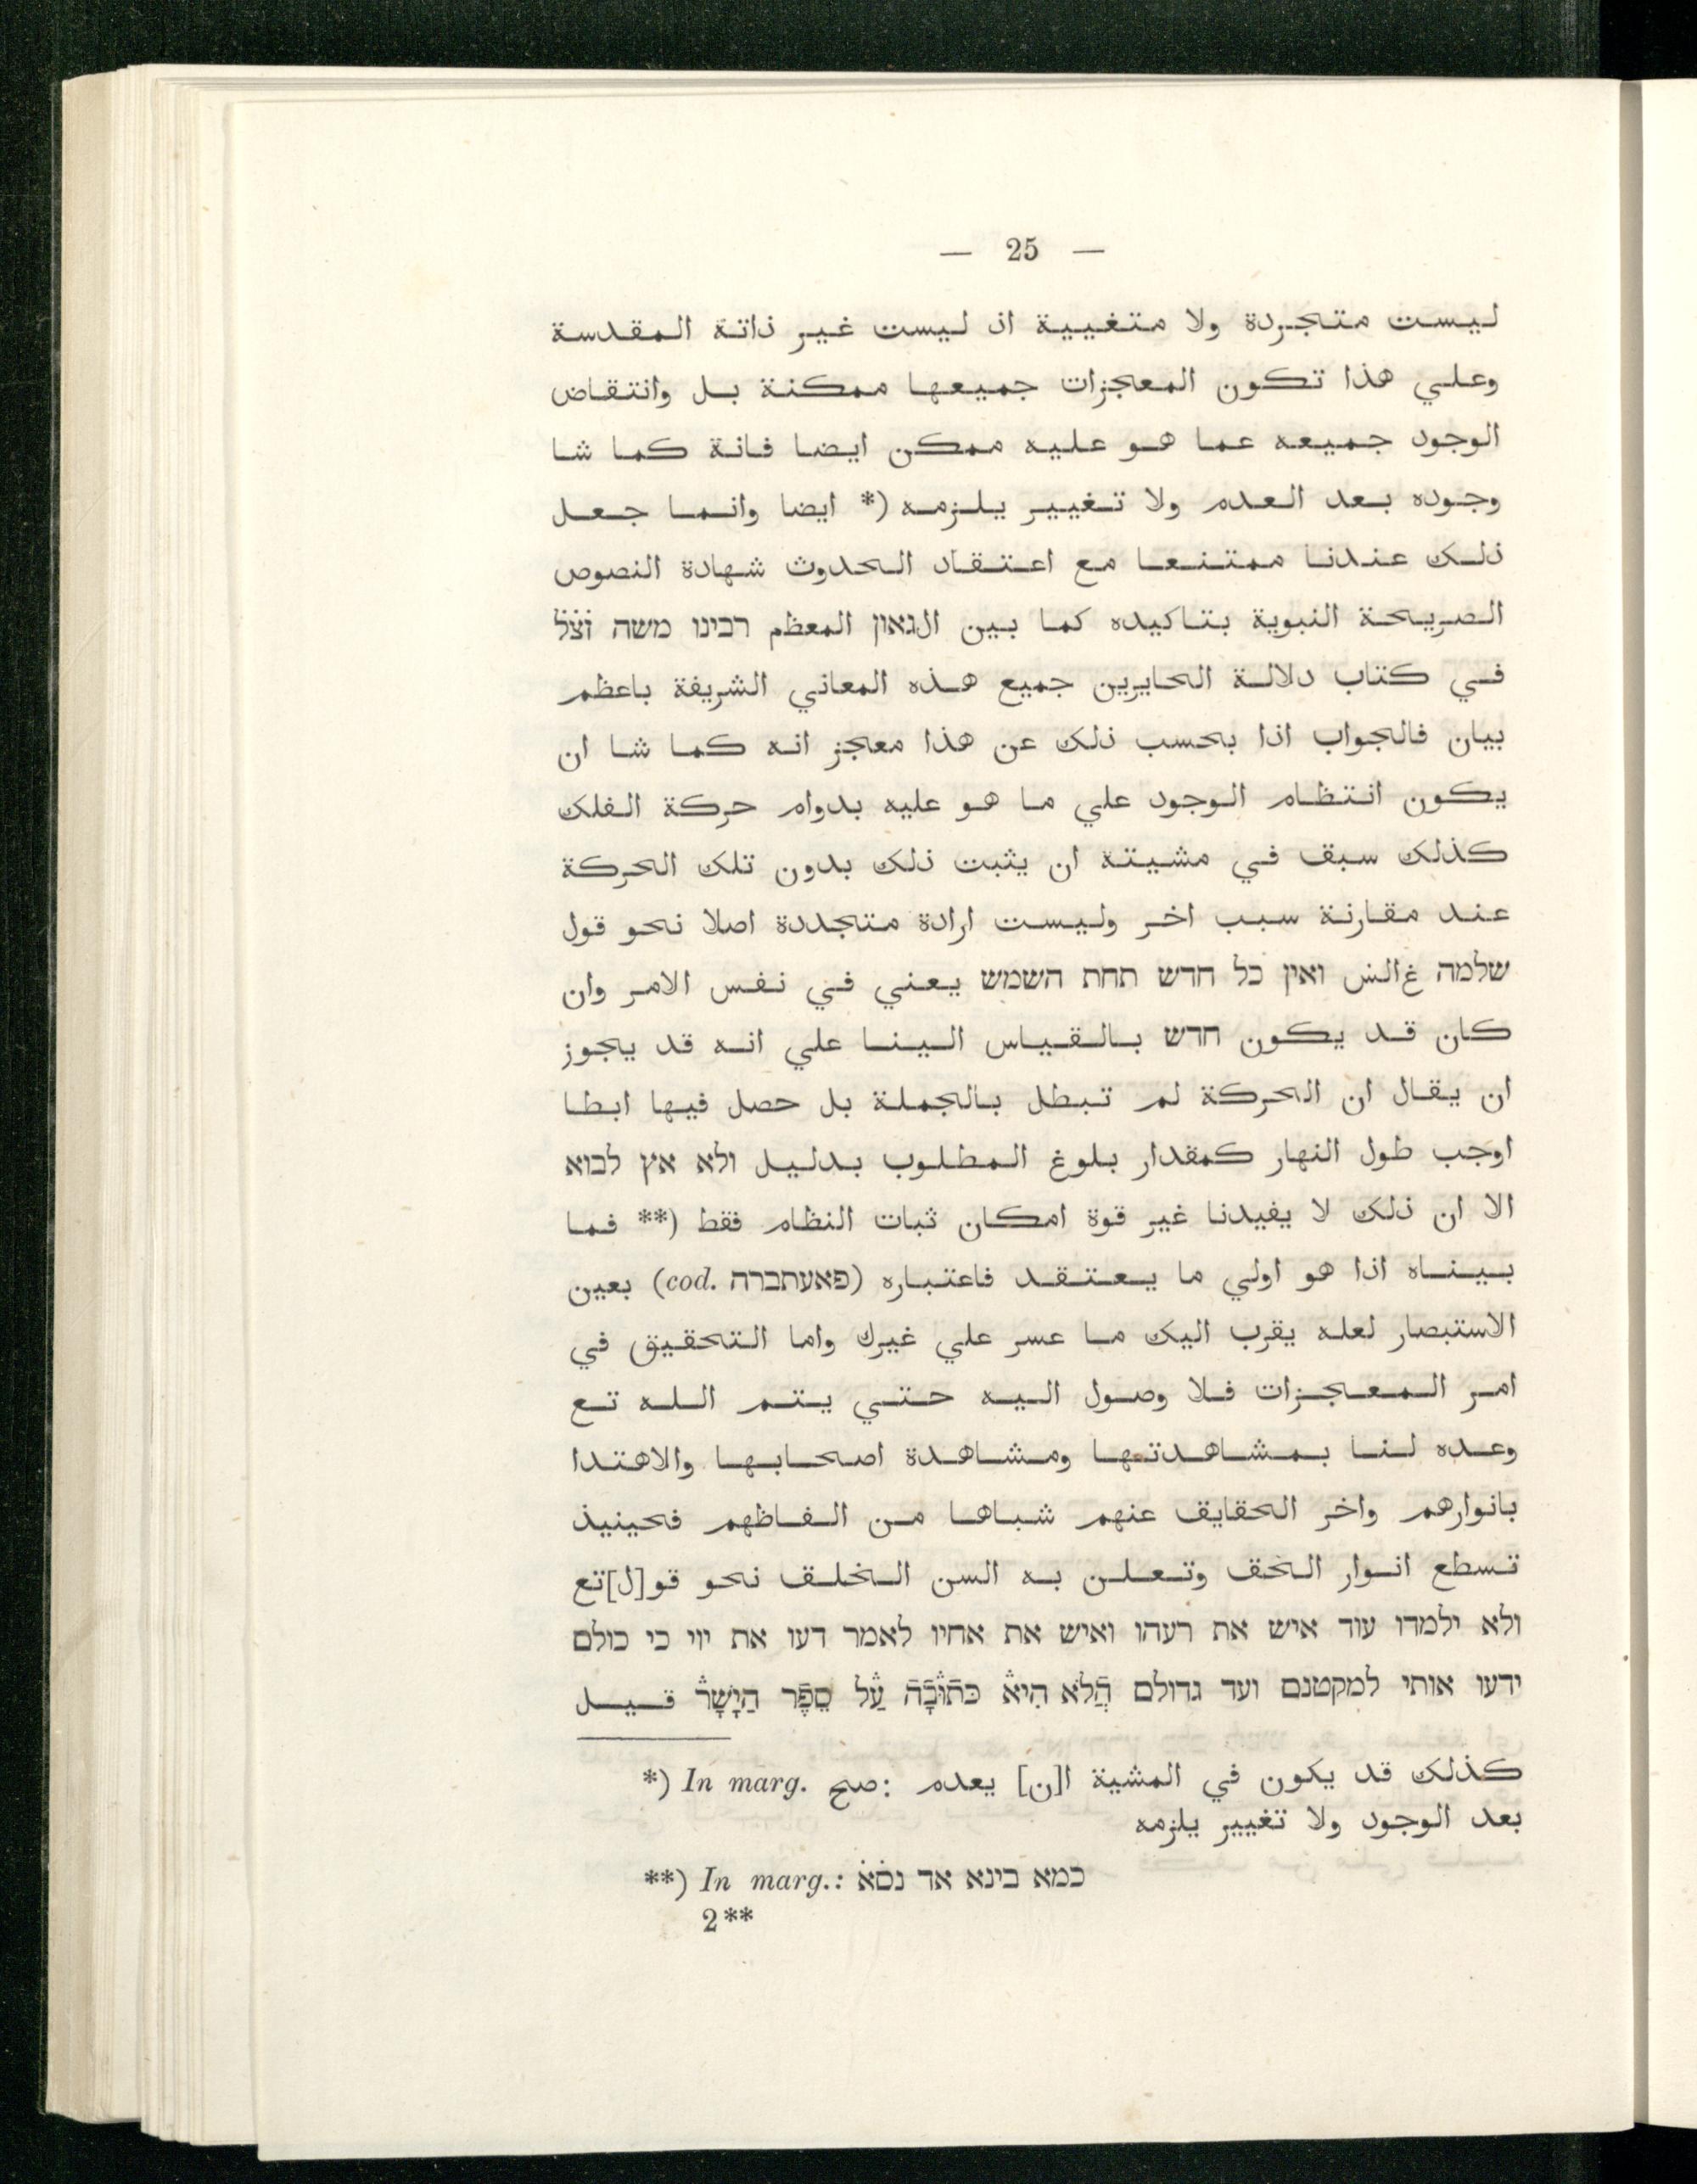 — 25 —
ليست متجردة ولا متغيية اذ ليست غير ذاتة المقدسة
وعلي هذا تكون المعجزات جميعها ممكنة بل وانتقاض
الوجود جميعه عما هو عليه ممكن ايضا فانة كما شا
وجوده بعد العدم ولا تغيير يلزمه (* ايضا وانما جعل
ذلك عندنا ممتنعا مع اعتقاد الحدوث شهادة النصوص
الصريحة النبوية بتاكيده كما بين الגאון المعظم רבינו משה זצל
في كتاب دلالة الحايرين جميع هذه المعاني الشريفة باعظم
بيان فالجواب اذا بحسب ذلك عن هذا معجز انه كما شا ان
يكون انتظام الوجود علي ما هو عليه بدوام حركة الفلك
كذلك سبق في مشيتة ان يثبت ذلك بدون تلك الحركة
عند مقارنة سبب اخر وليست ارادة متجددة اصلا نحو قول
שלמה ואין כל חדש תחת השמש يعني في نفس الامر وان
كان قد يكون חדש بالقياس الينا علي انه قد يجوز
ان يقال ان الحركة لم تبطل بالجملة بل حصل فيها ابطا
اوجب طول النهار كمقدار بلوغ المطلوب بدليل ולא אץ לבוא
الا ان ذلك لا يفيدنا غير قوة امكان ثبات النظام فقط (** فما
بيناه اذا هو اولي ما يعتقد فاعتباره (פאעתברה cod.) بعين
الاستبصار لعله يقرب اليك ما عسر علي غيرك واما التحقيق في
امر المعجزات فلا وصول اليه حتي يتم الله تع
وعده لنا بمشاهدتها ومشاهدة اصحابها والاهتدا
بانوارهم واخر الحقايق عنهم شباها من الفاظهم فحينيذ
تسطع انوار الحق وتعلن به السن الخلق نحو قو[ل]تع
ולא ילמדו עוד איש את רעהו ואיש את אחיו לאמר דעו את ייי כי כולם
ידעו אותי למקטנם ועד גדולם הֲלֹא הִיא כְּתוּבָה עַל סֵפֶר הַיָּשָׁר قيل
*) In marg. صح: كذلك قد يكون في المشية ا[ن] يعدم
بعد الوجود ولا تغيير يلزمه
**) In marg.: כמא בינא אד נסא
2**